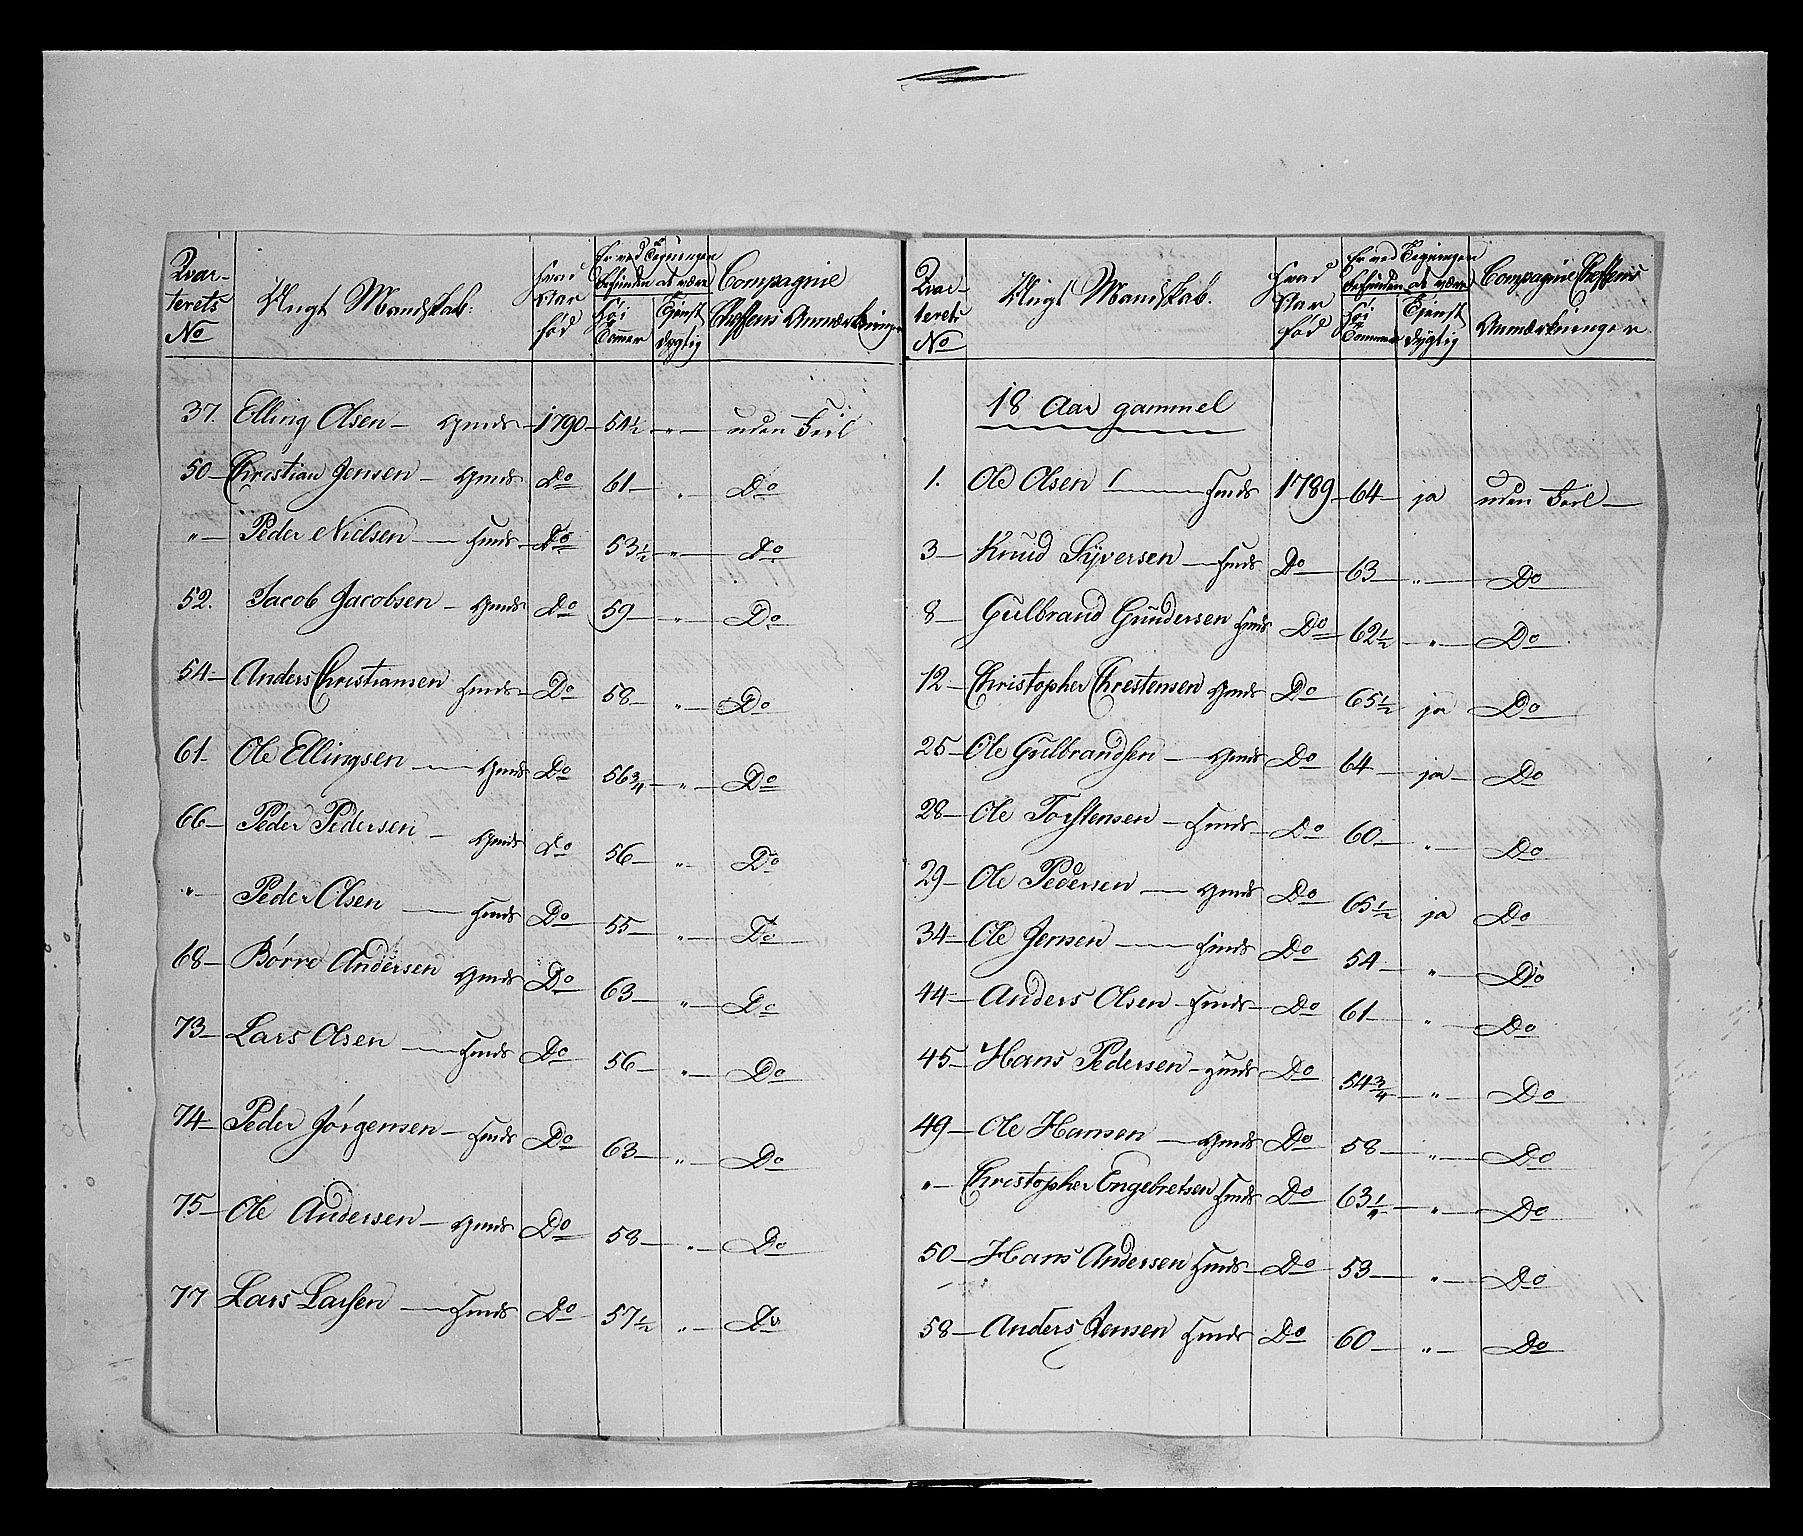 Qvar-
terets
No
Ungt Mandskab.
hvad
Aar
fød
Er ved Tegningen
befunden at være
Høi
Tommer
Tjenst
dygtig
Compagnie
Cheffens Anmærkninger
37. Elling Olsen — 1790 — 54½ „ — uden Feil
50 — Christian Jensen — Do 61 — „ Do
„ — Peder Nielsen — Do 53½ „ — Do
52. Jacob Jacobsen — Do 59 — „ — Do
54 — Anders Christiansen — Do 58 — „ — Do
61 — Ole Ellingsen — Do 56¾ — „ — Do
66 — Peder Pedersen — Do 56 — „ — Do
„ — Peder Olsen — Do 55 — „ — Do
68 — Börre Andersen Do 63 — „ — Do
73 — Lars Olsen — Do 56 — „ — Do
74 — Peder Jörgensen — Do 63 — „ — Do
75 — Ole Andersen — Do 58 — „ — Do
77 Lars Larsen — Do 57½ „ — Do
Qvar-
terets
No
Ungt Mandskab.
hvad
Aar
fød
Er ved Tegningen
befunden at være
Høi
Tommer
Tjenst
dygtig
Compagnie Cheffens
Anmærkninger
18 Aar gammel
1. Ole Olsen — 1789 — 64 — ja uden Feil —
3 — Knud Syversen — Do 63 — „ — Do
8 — Gulbrand Gundersen Do 62½ „ — Do
12 — Christopher Chrestensen Do 65½ ja Do
25 — Ole Gulbrandsen — Do 64 — ja — Do
28 — Ole Torstensen — Do 60 — „ — Do
29 — Ole Pedersen — Do 65½ ja Do
34 — Ole Jensen — Do 54 — „ — Do
44 — Anders Olsen — Do 61 — „ — Do
45 — Hans Pedersen — Do 54¾ — „ — Do
49 — Ole Hansen — Do 58 — „ — Do
„ — Christopher Engebretsen Do 63 — „ — Do
50 — Hans Andersen — Do 53 — „ — Do
58 — Anders Jensen Do 60 — „ — Do